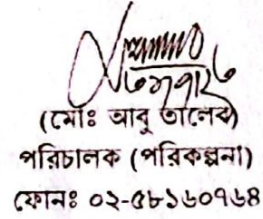 (মোঃ আবু তালেব)
পরিচালক (পরিকল্পনা)
ফোনঃ ০২-৫৮১৬০৭৬৪